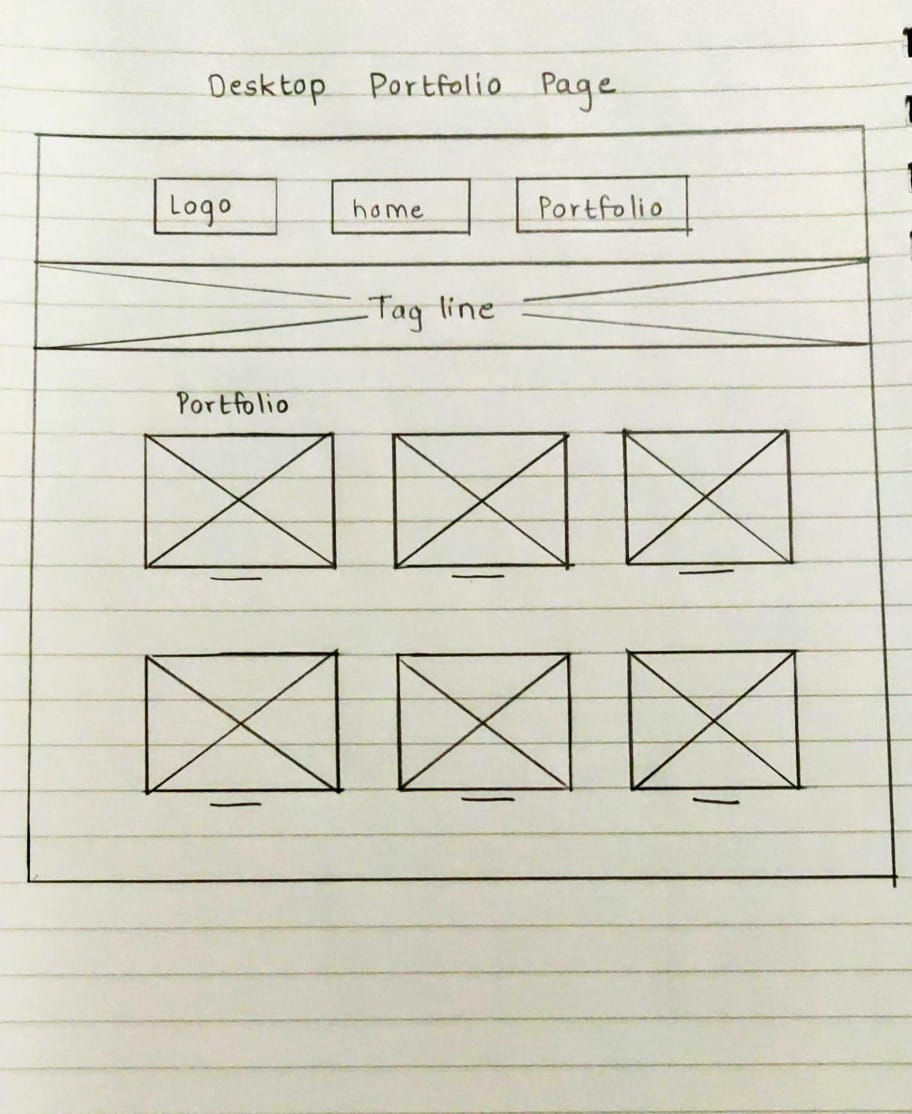 Desktop Portfolio Page
Logo home Portfolio
Tag line
Portfolio